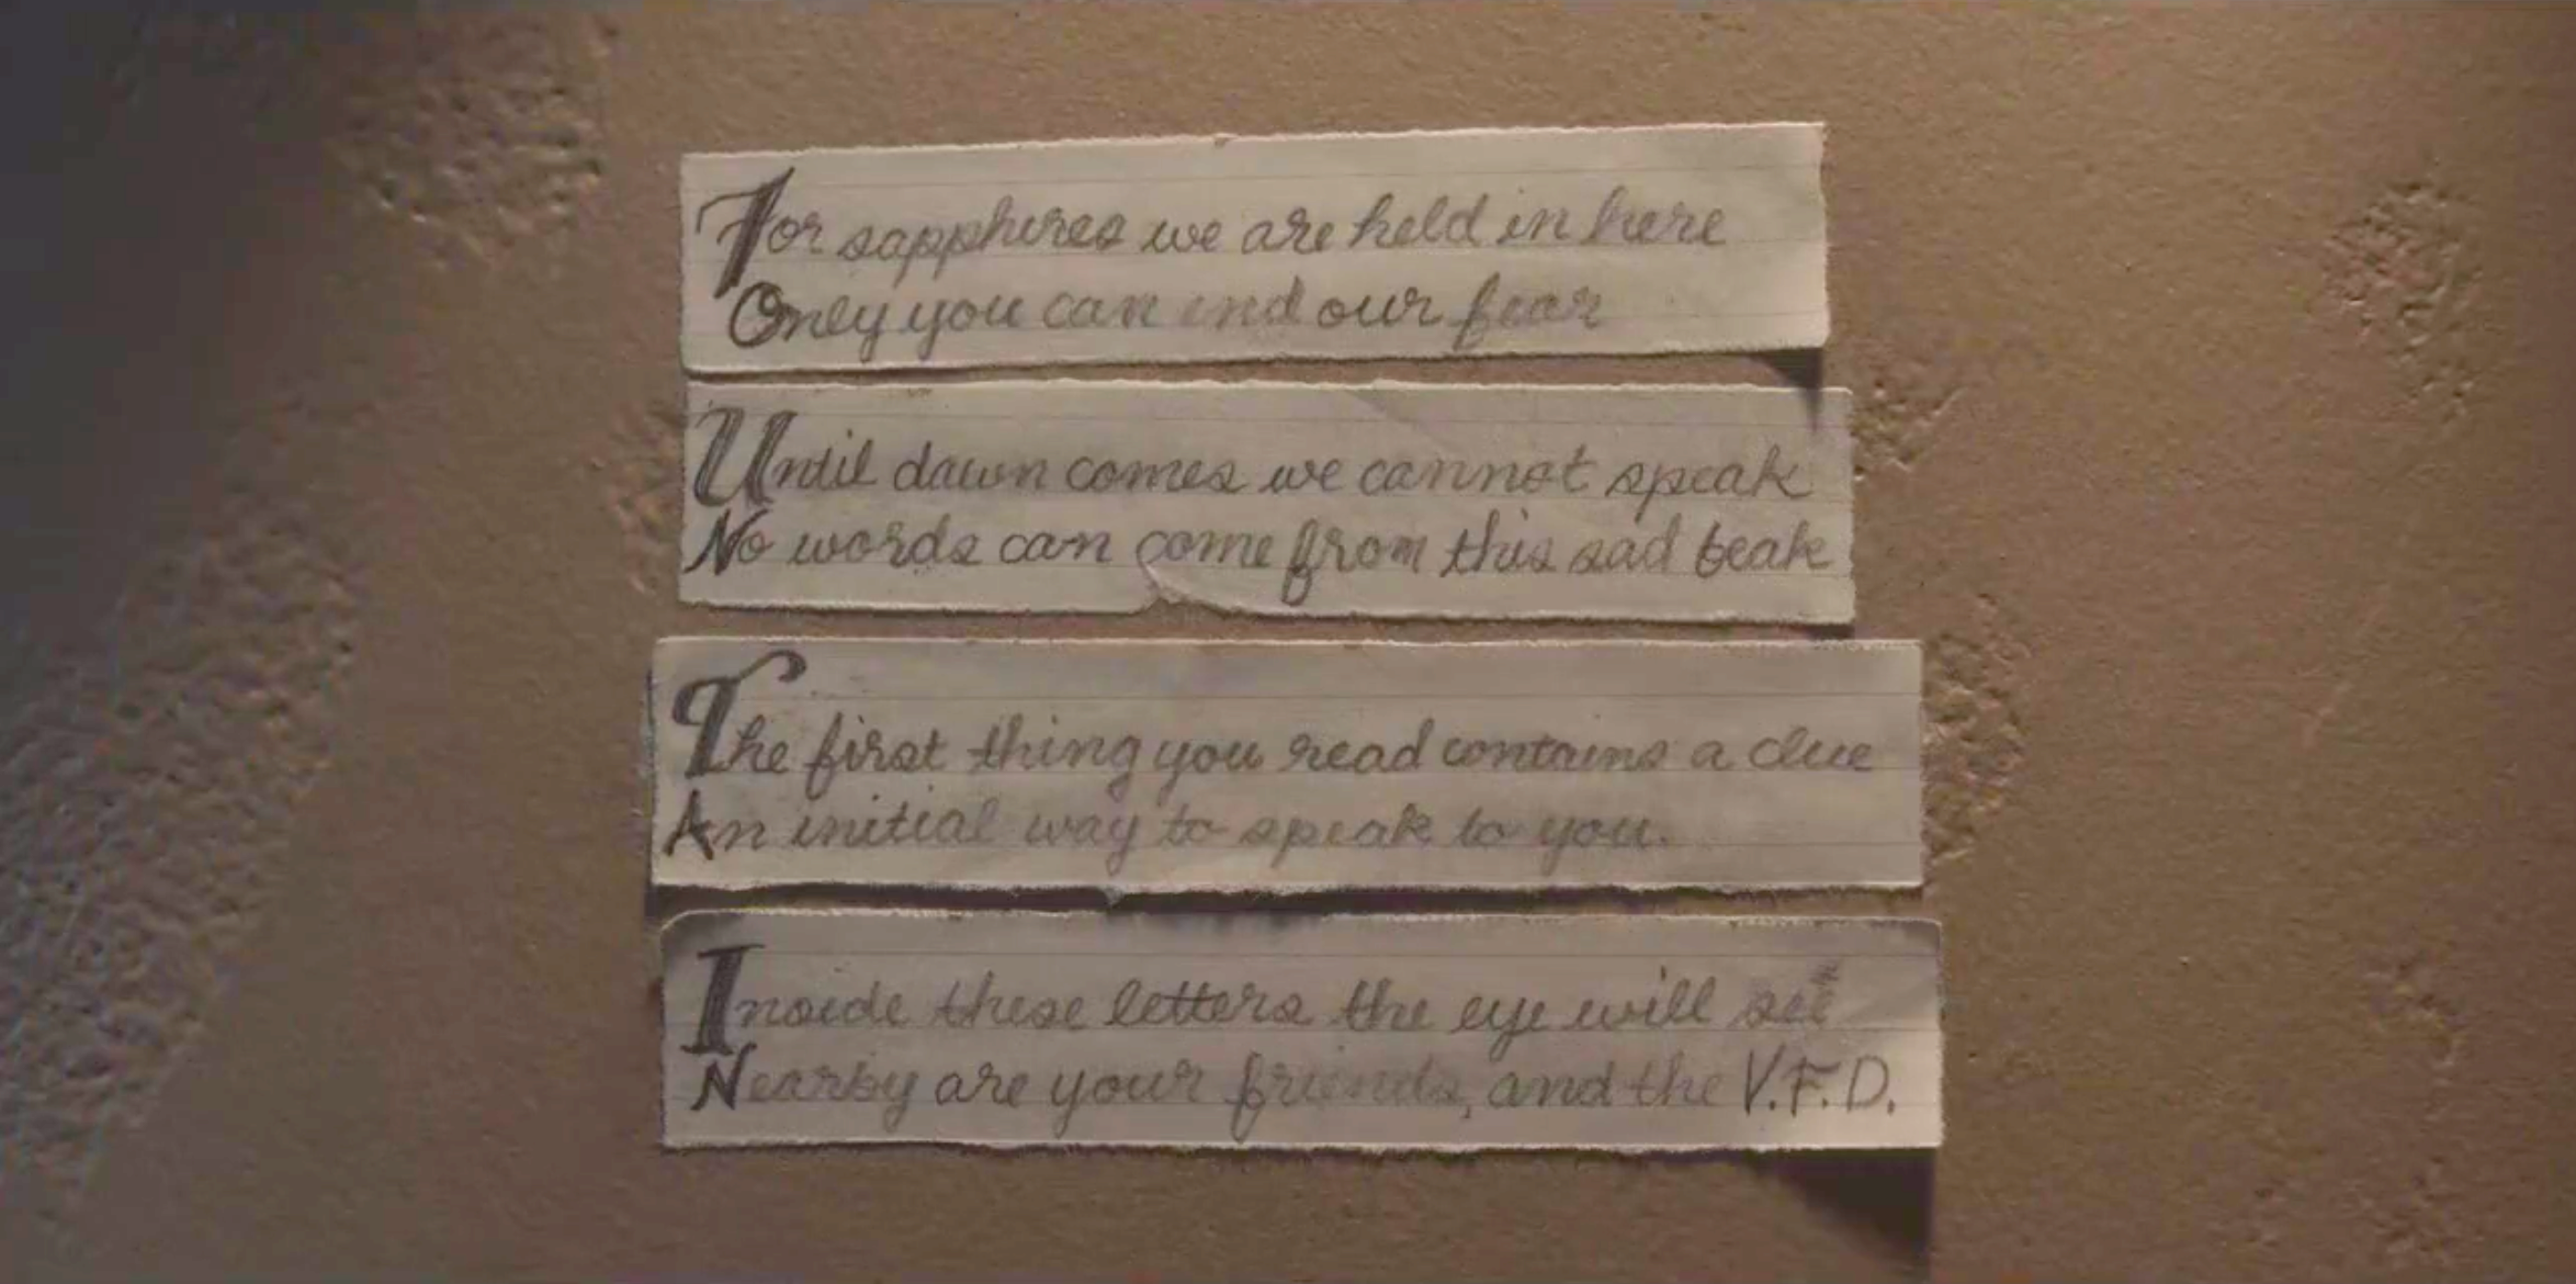 For sapphires we are held in here
Only you can end our fear
Until dawn comes we cannot speak
No words can come from this sad beak
The first thing you read contains a clue
An initial way to speak to you.
Inside these letters the eye will see
Nearby are your friends, and the V.F.D.